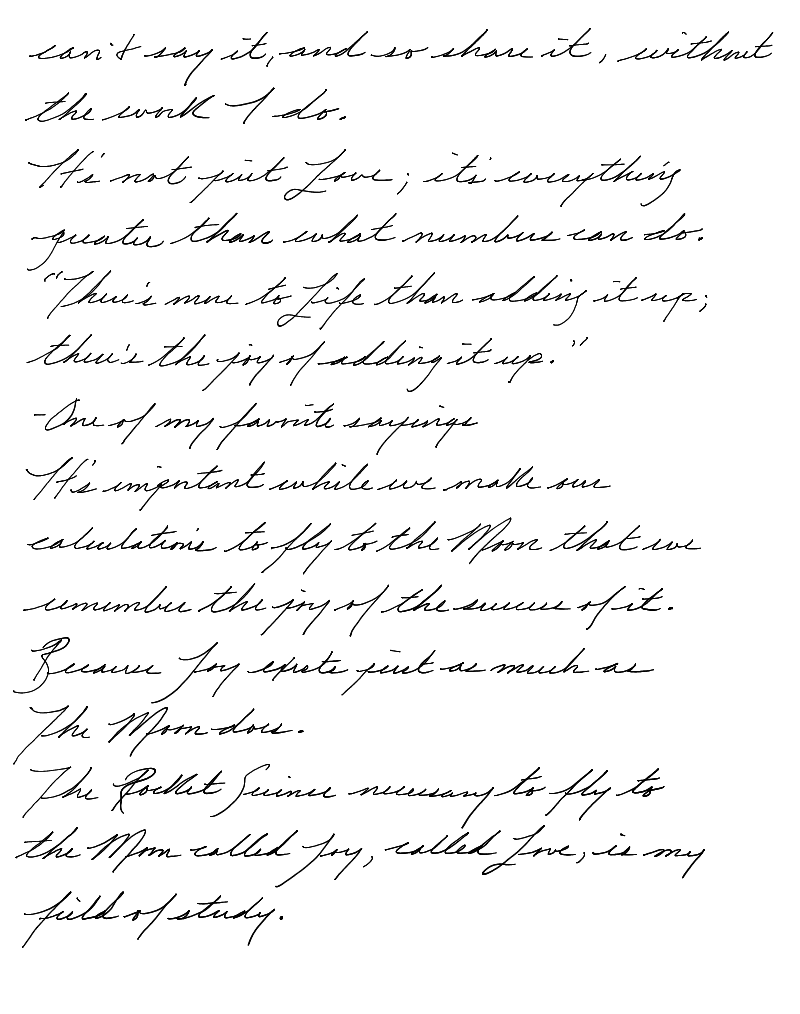 can't say it, and so share it, without
the work I do.
It's not just Love; it's everything
greater than what numbers can do.
"There's more to Life than adding it up;
there's the joy of adding it up."
-One of my favorite sayings
It's important while we make our
calculations to fly to the Moon that we
remember the joy of the success of it.
Because Joy exists just as much as
The Moon does.
The Rocket Science necessary to fly to
the Moon called Joy, called Love, is my
field of study.